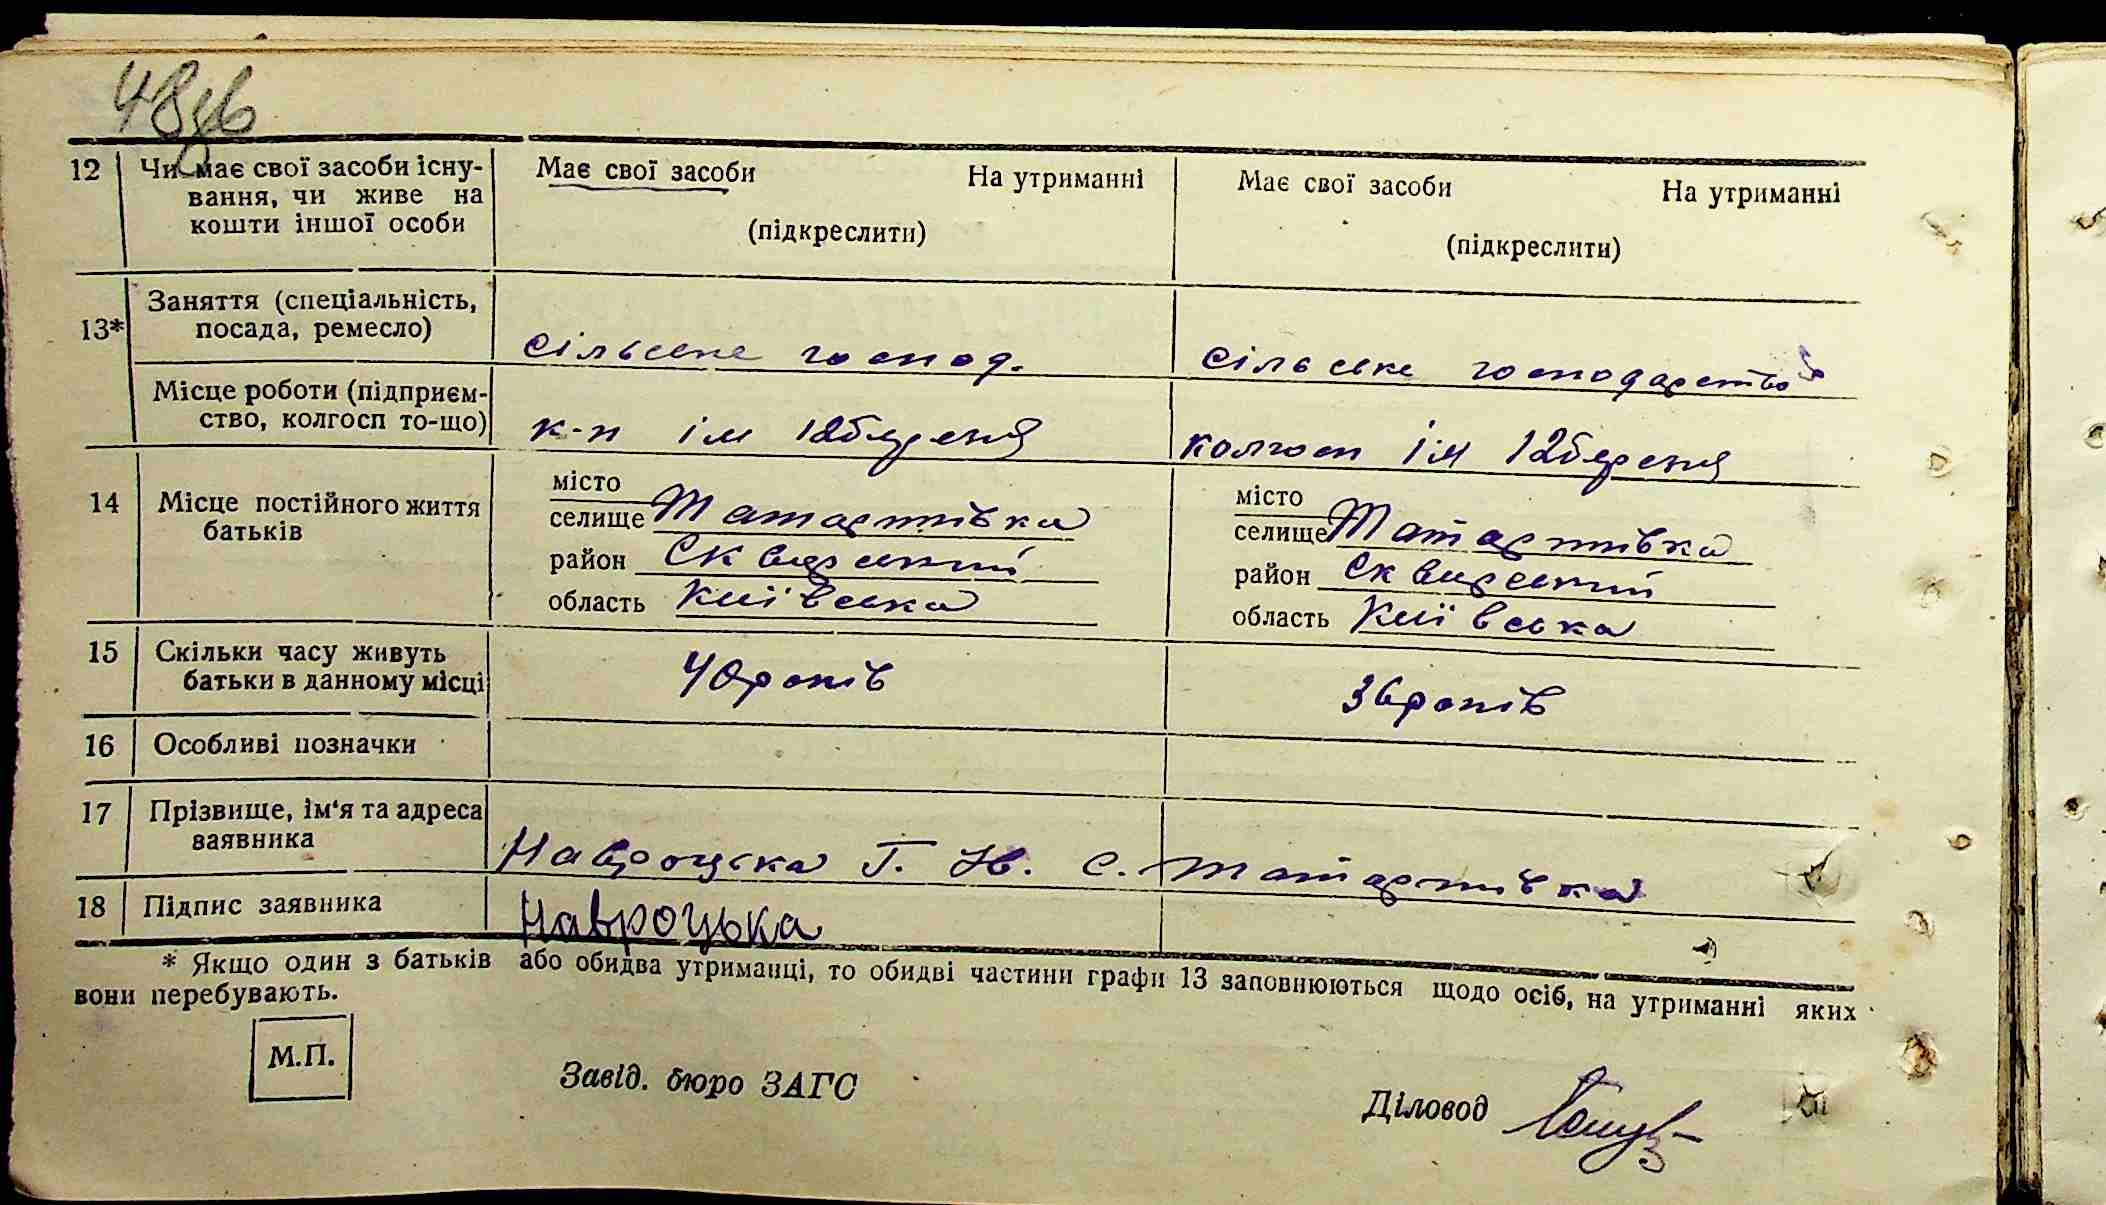 48зв
12 Чи має свої засоби існу- Має свої засоби На утриманні Має свої засоби На утриманні
вання, чи живе на
кошти іншої особи (підкреслити) (підкреслити)
13* Заняття (спеціальність,
посада, ремесло) сільське господ. сільське господарство
Місце роботи (підприєм-
ство, колгосп то-що) к-п ім 12березня колгосп ім 12березня
14 Місце постійного життя
батьків
місто місто
селище Татарпівка селище Татарпівка
район Сквирський район Сквирський
область Київська область Київська
15 Скільки часу живуть
батьки в данному місці 40років 36років
16 Особливі позначки
17 Прізвище, ім'я та адреса
заявника Навроцька Г. Ів. с. Татарпівка
18 Підпис заявника Навроцька
* Якщо один з батьків або обидва утриманці, то обидві частини графи 13 заповнюються щодо осіб, на утриманні яких
вони перебувають.
М.П.
Завід. бюро ЗАГС
Діловод